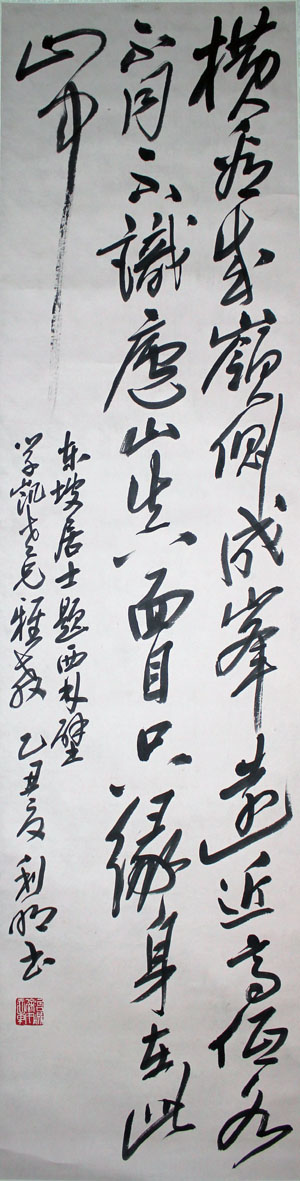 横看成嶺側成峯遠近高低各
不同不識廬山真面目只緣身在此
山中
东坡居士题西林壁
学凯老兄雅教 乙丑夏 利明书